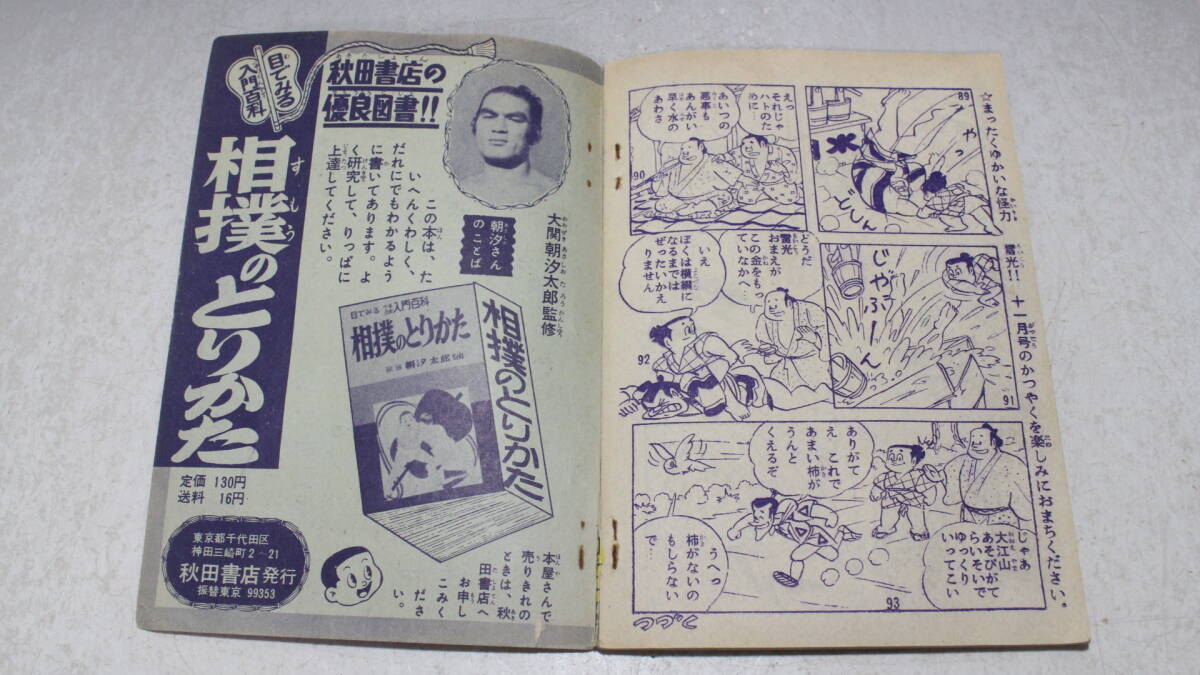 ☆まったくゆかいな怪力雷光!! 十一月号のかつやくを楽しみにおまちください。
89
やっ
水
どしん
えっ
それじゃ
ハトのた
めに…
あいつの
悪事も
あんがい
早く水の
あわさ
90
じゃぶーん
91
どうだ
雷光
おまえが
この金をもっ
ていなかへ…
いえ
ぼくは横綱に
なるまでは
ぜったいかえ
りません
92
じゃあ
大江山
あそびがて
らいそいで
ゆっくり
いってこい
ありがて
え これで
あまい柿が
うんと
くえるぞ
うへっ
柿がないの
もしらない
で…
93
つづく
目でみる
入門百科
相撲のとりかた
すもう
定価 130円
送料 16円
東京都千代田区
神田三崎町2-21
秋田書店発行
振替東京 99353
秋田書店の
優良図書!!
大関朝汐太郎監修
朝汐さん
のことば
この本は、た
いへんくわしく、
だれにでもわかるよう
に書いてあります。よ
く研究して、りっぱに
上達してください。
目でみる 入門百科
相撲のとりかた
朝汐太郎
相撲のとりかた
本屋さんで
売りきれの
ときは、秋
田書店へ
お申し
こみく
ださ
い。